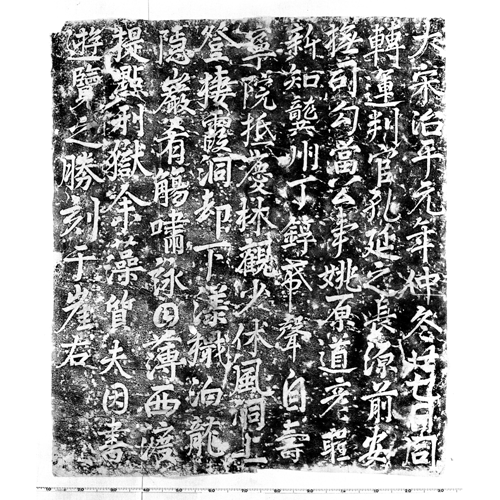 大宋治平元年仲冬廿七日同
轉運判官孔延之長源前安
撫司勾當公事姚原道彥聖
新知龔州丁錞希聲自壽
寧院抵慶林觀少休風洞上
登棲霞洞却下漾檝泊龍
隱巖肴觴嘯詠因薄西渡
提點刑獄余藻質夫因書
遊覽之勝刻于崖右